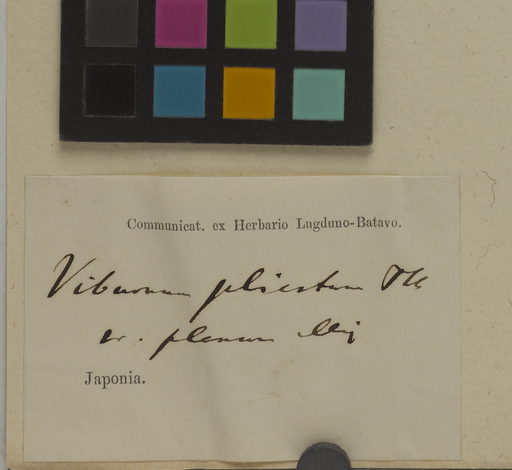 Communicat. ex Herbario Lugduno-Batavo.
Viburnum plicatum Th
v. plenum Miq
Japonia.